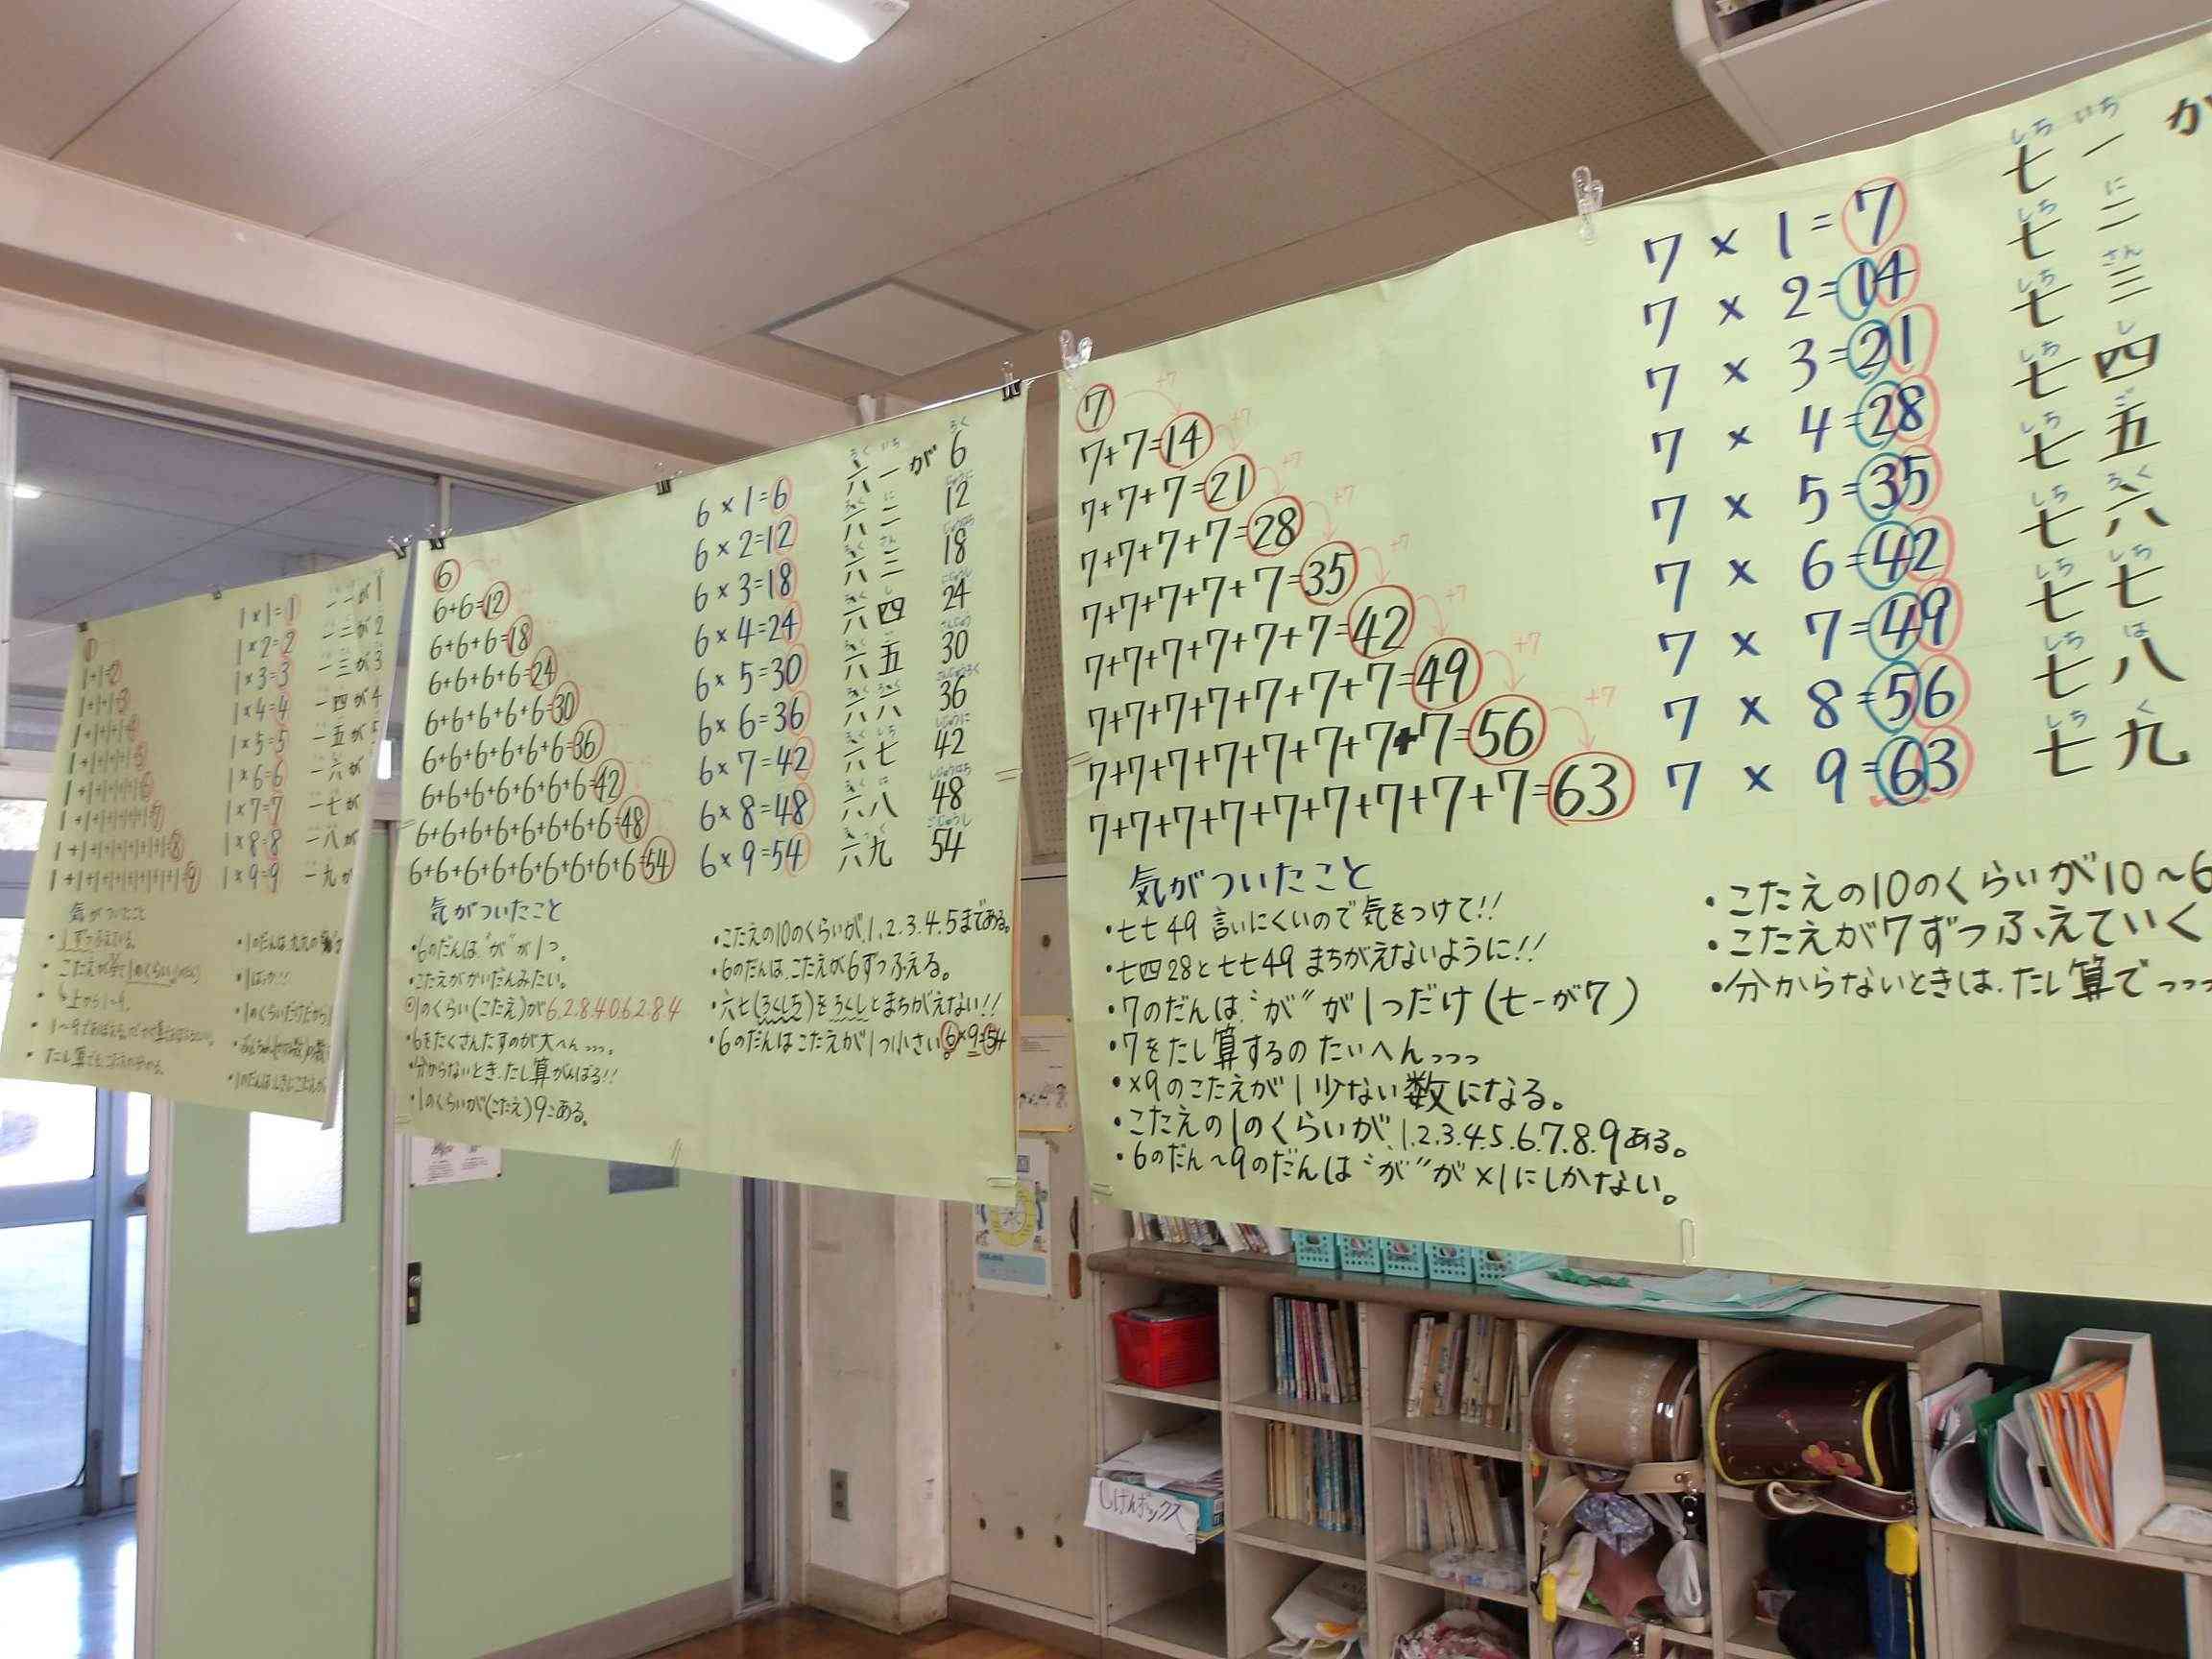 1×1=1
1×2=2
1×3=3
1×4=4
1×5=5
1×6=6
1×7=7
1×8=8
1×9=9
一一が1
一二が2
一三が3
一四が4
一五が5
一六が
一七が
一八が
一九が
1+1=2
1+1+1+1+1+1+1+1=8
1+1+1+1+1+1+1+1+1=9
気がついたこと
6
6+6=12
6+6+6=18
6+6+6+6=24
6+6+6+6+6=30
6+6+6+6+6+6=36
6+6+6+6+6+6+6=42
6+6+6+6+6+6+6+6=48
6+6+6+6+6+6+6+6+6=54
6×1=6
6×2=12
6×3=18
6×4=24
6×5=30
6×6=36
6×7=42
6×8=48
6×9=54
六一が6
六二 12
六三 18
六四 24
六五 30
六六 36
六七 42
六八 48
六九 54
気がついたこと
・6のだんは"が"が1つ。
・こたえがかいだんみたい。
1のくらい(こたえ)が6.2.8.4.0.6.2.8.4
・6をたくさんたすのが大へん…。
・分からないとき、たし算がんばる!!
・1のくらいが(こたえ)9こある。
・こたえの10のくらいが、1、2、3、4、5まである。
・6のだんは、こたえが6ずつふえる。
・六七(ろくしち)をろくしとまちがえない!!
・6のだんはこたえが1つ小さい。6×9=54
7
7+7=14
7+7+7=21
7+7+7+7=28
7+7+7+7+7=35
7+7+7+7+7+7=42
7+7+7+7+7+7+7=49
7+7+7+7+7+7+7+7=56
7+7+7+7+7+7+7+7+7=63
+7
+7
+7
+7
+7
+7
+7
+7
7×1=7
7×2=14
7×3=21
7×4=28
7×5=35
7×6=42
7×7=49
7×8=56
7×9=63
しち いち
七一が
しち に
七二
しち さん
七三
しち し
七四
しち ご
七五
しち ろく
七六
しち しち
七七
しち は
七八
しち く
七九
気がついたこと
・七七49 言いにくいので気をつけて!!
・七四28と七七49 まちがえないように!!
・7のだんは、"が"が1つだけ(七一が7)
・7をたし算するのたいへんっっっ
・×9のこたえが1少ない数になる。
・こたえの1のくらいが、1.2.3.4.5.6.7.8.9ある。
・6のだん〜9のだんは"が"が×1にしかない。
・こたえの10のくらいが10〜6
・こたえが7ずつふえていく
・分からないときは、たし算でっっっ
しげんボックス